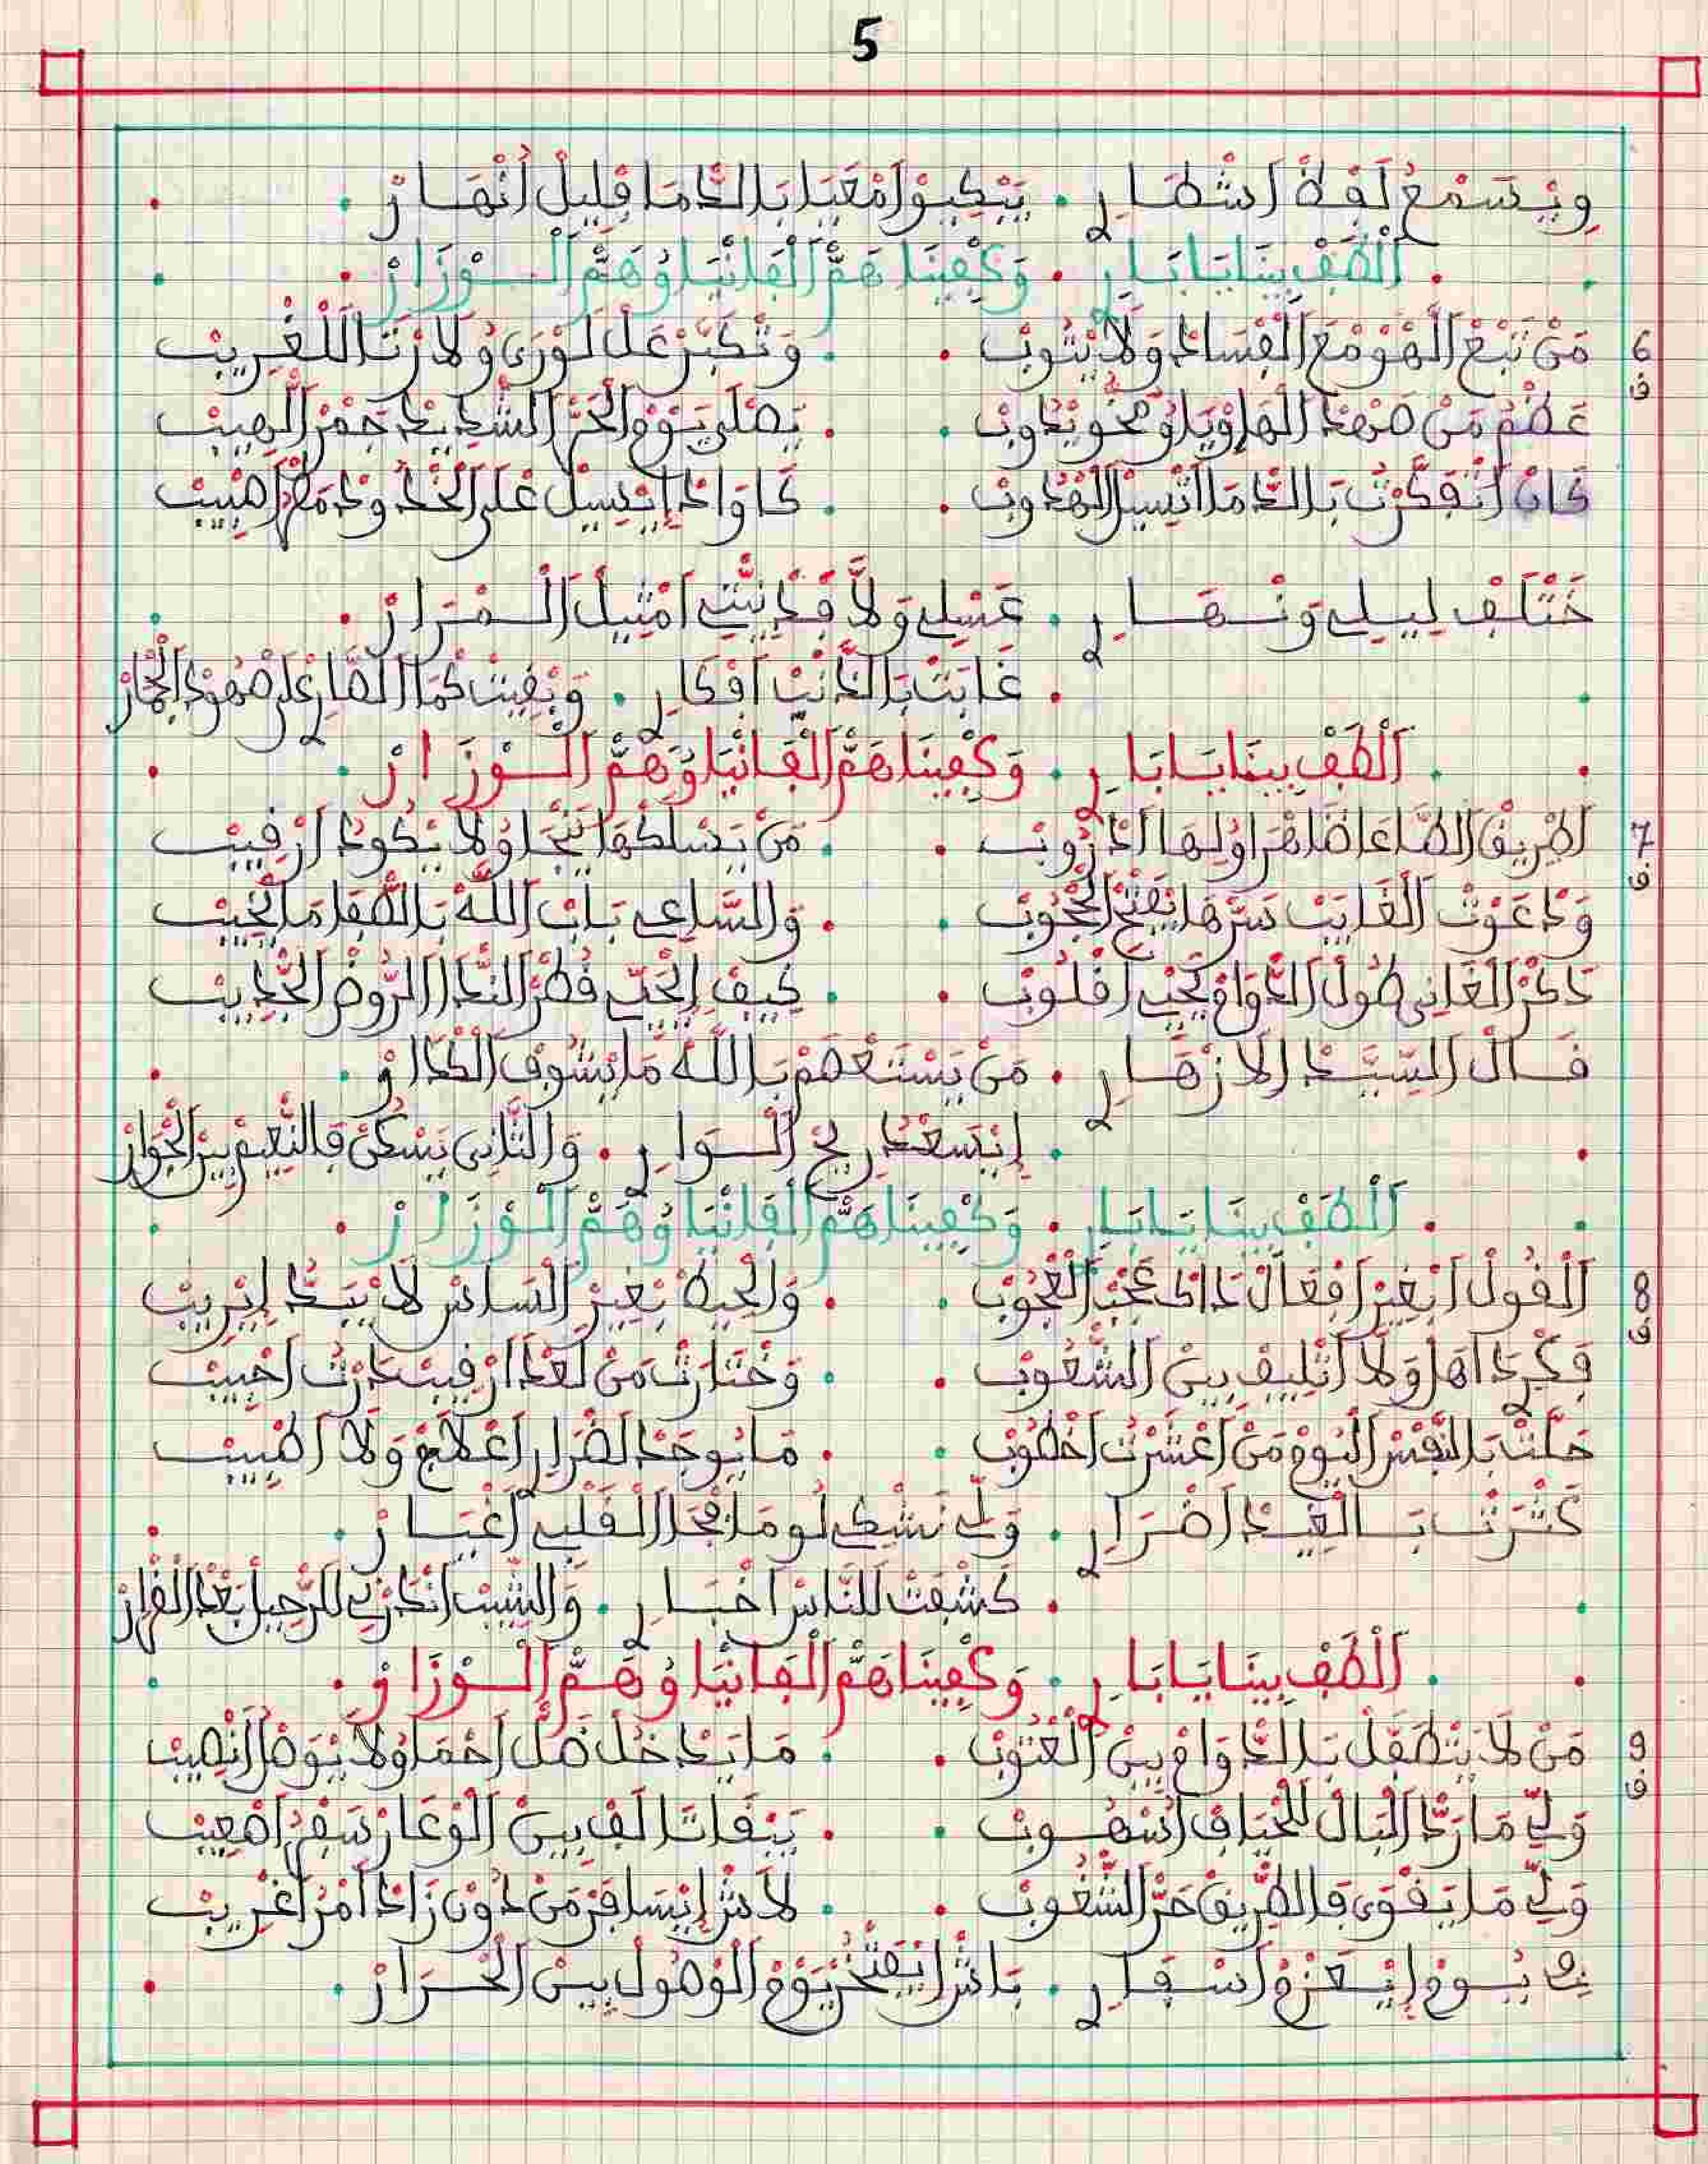 5
وِيْسَمْعْ لَفْظْ اَشْطَارِي . يَبْكِيوْ اَمْعَايَا بَالدَّمَا قْلِيلْ اَنْهَارْ
اَلْطَفْ بِينَا يَا بَارِي . وَكْفِينَا هَمّْ الْفَانْيَا وُهَمّْ الْوْزَارْ
6 ف مَنْ تْبَعْ الْهْوْ مْعَ الْفْسَادْ وَلَا يْتُوبْ . وَتْكَبَّرْ عَلْ لَوْرَى وُلَا رْتَا اللَغْرِيبْ
عَظْمُ مَنْ صَهْدْ الْهَاوْيَا وُمُخُّو يْدُوبْ . يَصْلَى يَوْمْ الْحَرّْ الشْدِيدْ جَمْرْ الْهِيبْ
كَانْ اَتْفَكَّرْتْ بَالدَّمَا اتْسِيلْ الْهْدُوبْ . كَا وَادْ اِيْسِيلْ عْلَى الْخَدّْ وَدْمَعْ اَصْبِيبْ
خَتْلَفْ لِيلِي وَنْهَارِي . عَسْلِي وَلَّا فْدَاتِي اَمْثِيلْ الْمْرَارْ
غَابَتْ بَالدَّنْبْ اَفْكَارِي . وَبْقِيتْ كْمَا الطَّارِي عْلَى صْهُودْ الْجْمَارْ
اَلْطَفْ بِينَا يَا بَارِي . وَكْفِينَا هَمّْ الْفَانْيَا وُهَمّْ الْوْزَارْ
7 ف اَطْرِيقْ الطَّاعَا ظَاهْرَا وُلِيهَا اَدْرُوبْ . مَنْ يَسْلَكْهَا يَنْجَا وُلَا يْكُودُ اَرْقِيبْ
وَدْعَوْتْ الْغَايَبْ سَرّْهَا يَفْتَحْ الْحْجُوبْ . وَالسَّاعِي بَابْ اللَّهْ بَالصّْفَا مَا يْخِيبْ
دَكْرْ الْغَانِي طُولْ الدّْوَامْ يَحْيِي اَقْلُوبْ . كِيفْ اِيْحَيِّي قُطْرْ النّْدَا الرُّوضْ الْجْدِيبْ
قَالْ السَّيَّدْ الَازْهَارِي . مَنْ يَسْتَعْصَمْ بَاللَّهْ مَا يْشُوفْ اكْدَارْ
اِيْسَعْدْ رِيحْ السْوَارِي . وَالتَّانِي يَسْكَنْ فَالنّْعِيمْ بِينْ الْجْوَارْ
اَلْطَفْ بِينَا يَا بَارِي . وَكْفِينَا هَمّْ الْفَانْيَا وُهَمّْ الْوْزَارْ
8 ف اَلْقُولْ اَبْغِيرْ اَفْعَالْ دَاكْ عَجْبْ الْعْجُوبْ . وَالْحِيطْ بْغِيرْ السَاسْ لَا بَدّْ اِيْرِيبْ
فَكْرِي دَاهَلْ وَلَا اَتْلِيفْ بِينْ الشّْعُوبْ . وَخْتَارْتْ مَنْ لَعْدَا اَرْقِيبْ دَرْتُ اَحْبِيبْ
حَلَّتْ بَالنَّفْسْ الْيُومْ مَنْ اَعْشَرْتُ اَخْطُوبْ . مَا يُوجَدْ لَضْرَارِي اَعْلَاجْ وَلَا اَطْبِيبْ
كَتْرَتْ بَالْغِيدْ اَضْرَارِي . وَلِّي نَشْكِي لُو مَا مْحَا الْقَلْبِي اَغْيَارْ
كَشْفَتْ لَلنَّاسْ اَخْبَارِي . وَالشِّيبْ اَنْدَرْنِي لَلرْحِيلْ بَعْدْ الْقْرَارْ
اَلْطَفْ بِينَا يَا بَارِي . وَكْفِينَا هَمّْ الْفَانْيَا وُهَمّْ الْوْزَارْ
9 ف مَنْ لَا يَتْطَفَّلْ بَالدّْوَامْ بِينْ الْعْتُوبْ . مَا يَدْخُلْ ظَلّْ اَحْمَا وُلَا يْوَصْلْ اَنْصِيبْ
وَلِّي مَا رَدّْ الْبَالْ لَلْحْيَافْ اَسْهُوبْ . يَبْقَا تَالَفْ بِينْ الْوْعَارْ سَفْرُ اَصْعِيبْ
وَلِّي مَا يَقْوَى فَالطّْرِيقْ حَرّْ الشّْغُوبْ . لَاشْ اِيْسَافَرْ مَنْ دُونْ زَادْ اَمْرُ اَغْرِيبْ
فِي يُومْ اِيْعَزْمْ اَسْفَارِي . بَاشْ اِيْفْتْخَرْ يَوْمْ الْوْصُولْ بِينْ الْحْرَارْ